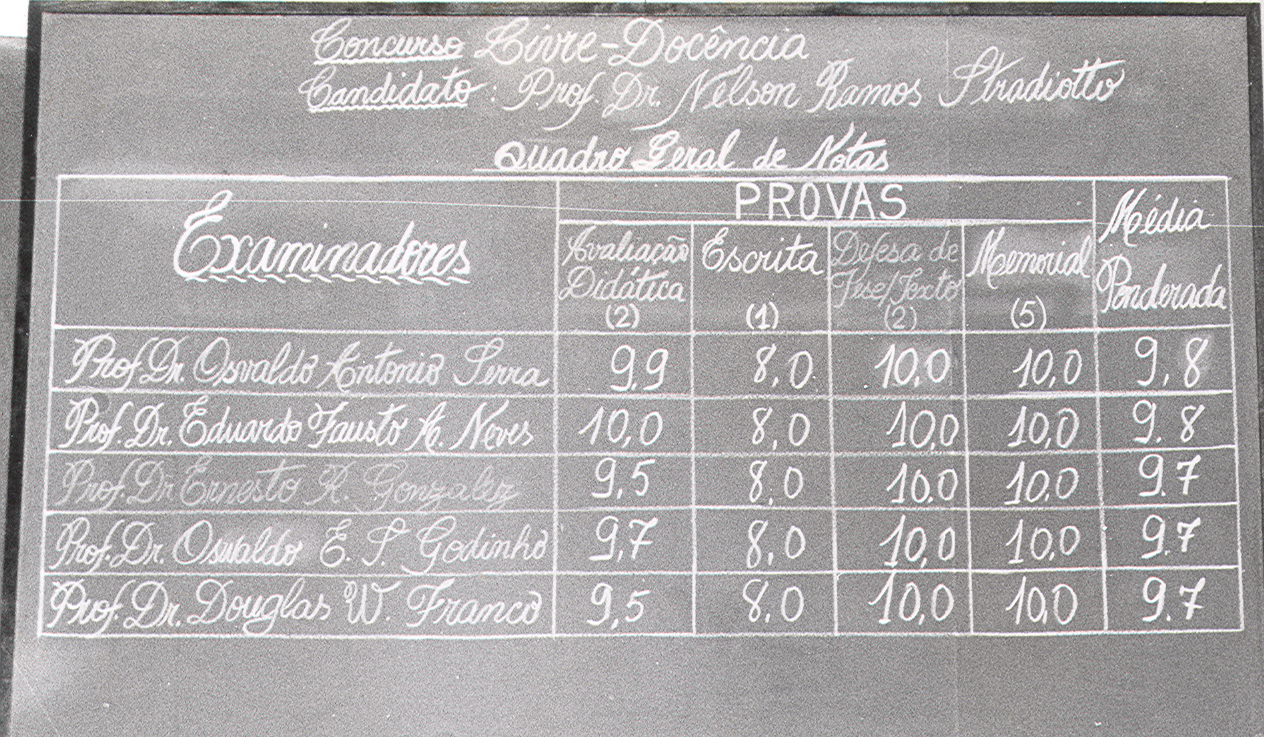 Concurso Livre-Docência
Candidato: Prof. Dr. Nelson Ramos Stradiotto
Quadro Geral de Notas
Examinadores PROVAS Média Ponderada
Avaliação Didática (2) Escrita (1) Defesa de Tese/Texto (2) Memorial (5)
Prof. Dr. Osvaldo Antonio Serra 9.9 8,0 10,0 10,0 9,8
Prof. Dr. Eduardo Fausto A. Neves 10,0 8,0 10,0 10,0 9.8
Prof. Dr Ernesto R. Gonzalez 9,5 8,0 10,0 10,0 9.7
Prof. Dr. Osvaldo E. S. Godinho 9,7 8,0 10,0 10,0 9.7
Prof. Dr. Douglas W. Franco 9,5 8,0 10,0 10,0 9.7